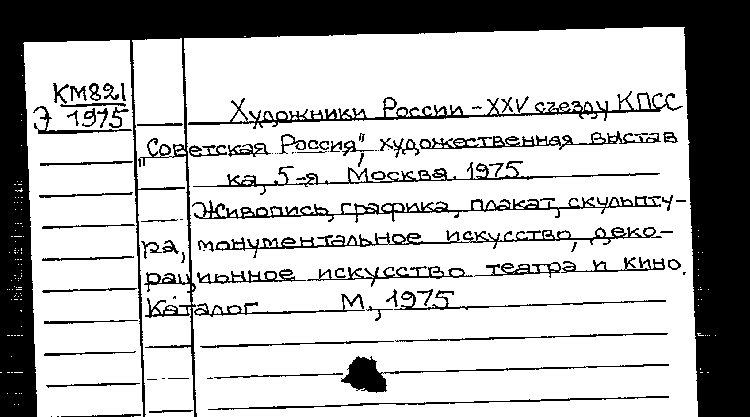 КМ821
Э 1975
Художники России – XXV съезду КПСС
"Советская Россия", художественная выстав
ка, 5-я. Москва. 1975.
Живопись, графика, плакат, скульпту-
ра, монументальное искусство, деко-
рационное искусство театра и кино.
Каталог М., 1975.